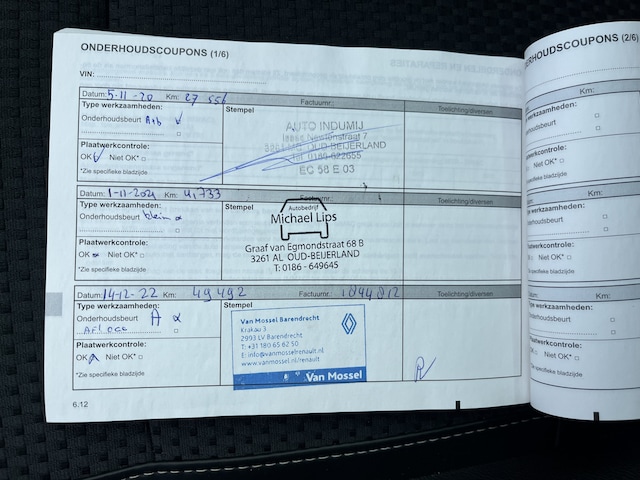 ONDERHOUDSCOUPONS (1/6)
VIN:
Datum: 5-11-20 Km: 27 556 Factuurnr.: Toelichting/diversen
Type werkzaamheden:
Onderhoudsbeurt A+b
Plaatwerkcontrole:
OK Niet OK*
*Zie specifieke bladzijde
Stempel
AUTO INDUMIJ
Isaac Newtonstraat 7
OUD-BEIJERLAND
Tel. 0186-622655
EC 58 E 03
Datum: 1-11-2021 Km: 41,733 Factuurnr.: Toelichting/diversen
Type werkzaamheden:
Onderhoudsbeurt klein
Plaatwerkcontrole:
OK Niet OK*
*Zie specifieke bladzijde
Stempel
Autobedrijf
Michael Lips
Graaf van Egmondstraat 68 B
3261 AL OUD-BEIJERLAND
T: 0186 - 649645
Datum: 14-12-22 Km: 49492 Factuurnr.: 1844812 Toelichting/diversen
Type werkzaamheden:
Onderhoudsbeurt A
Plaatwerkcontrole:
OK Niet OK*
*Zie specifieke bladzijde
Stempel
Van Mossel Barendrecht
Krakau 3
2993 LV Barendrecht
T: +31 180 65 82 50
E: info@vanmosselrenault.nl
www.vanmossel.nl/renault
Van Mossel
6.12
ONDERHOUDSCOUPONS (2/6)
VIN:
Datum: Km:
Type werkzaamheden:
Onderhoudsbeurt
Plaatwerkcontrole:
OK Niet OK*
*Zie specifieke bladzijde
Km:
werkzaamheden:
Onderhoudsbeurt
Plaatwerkcontrole:
OK Niet OK*
*Zie specifieke bladzijde
Datum: Km:
Type werkzaamheden:
Onderhoudsbeurt
Plaatwerkcontrole:
OK Niet OK*
*Zie specifieke bladzijde